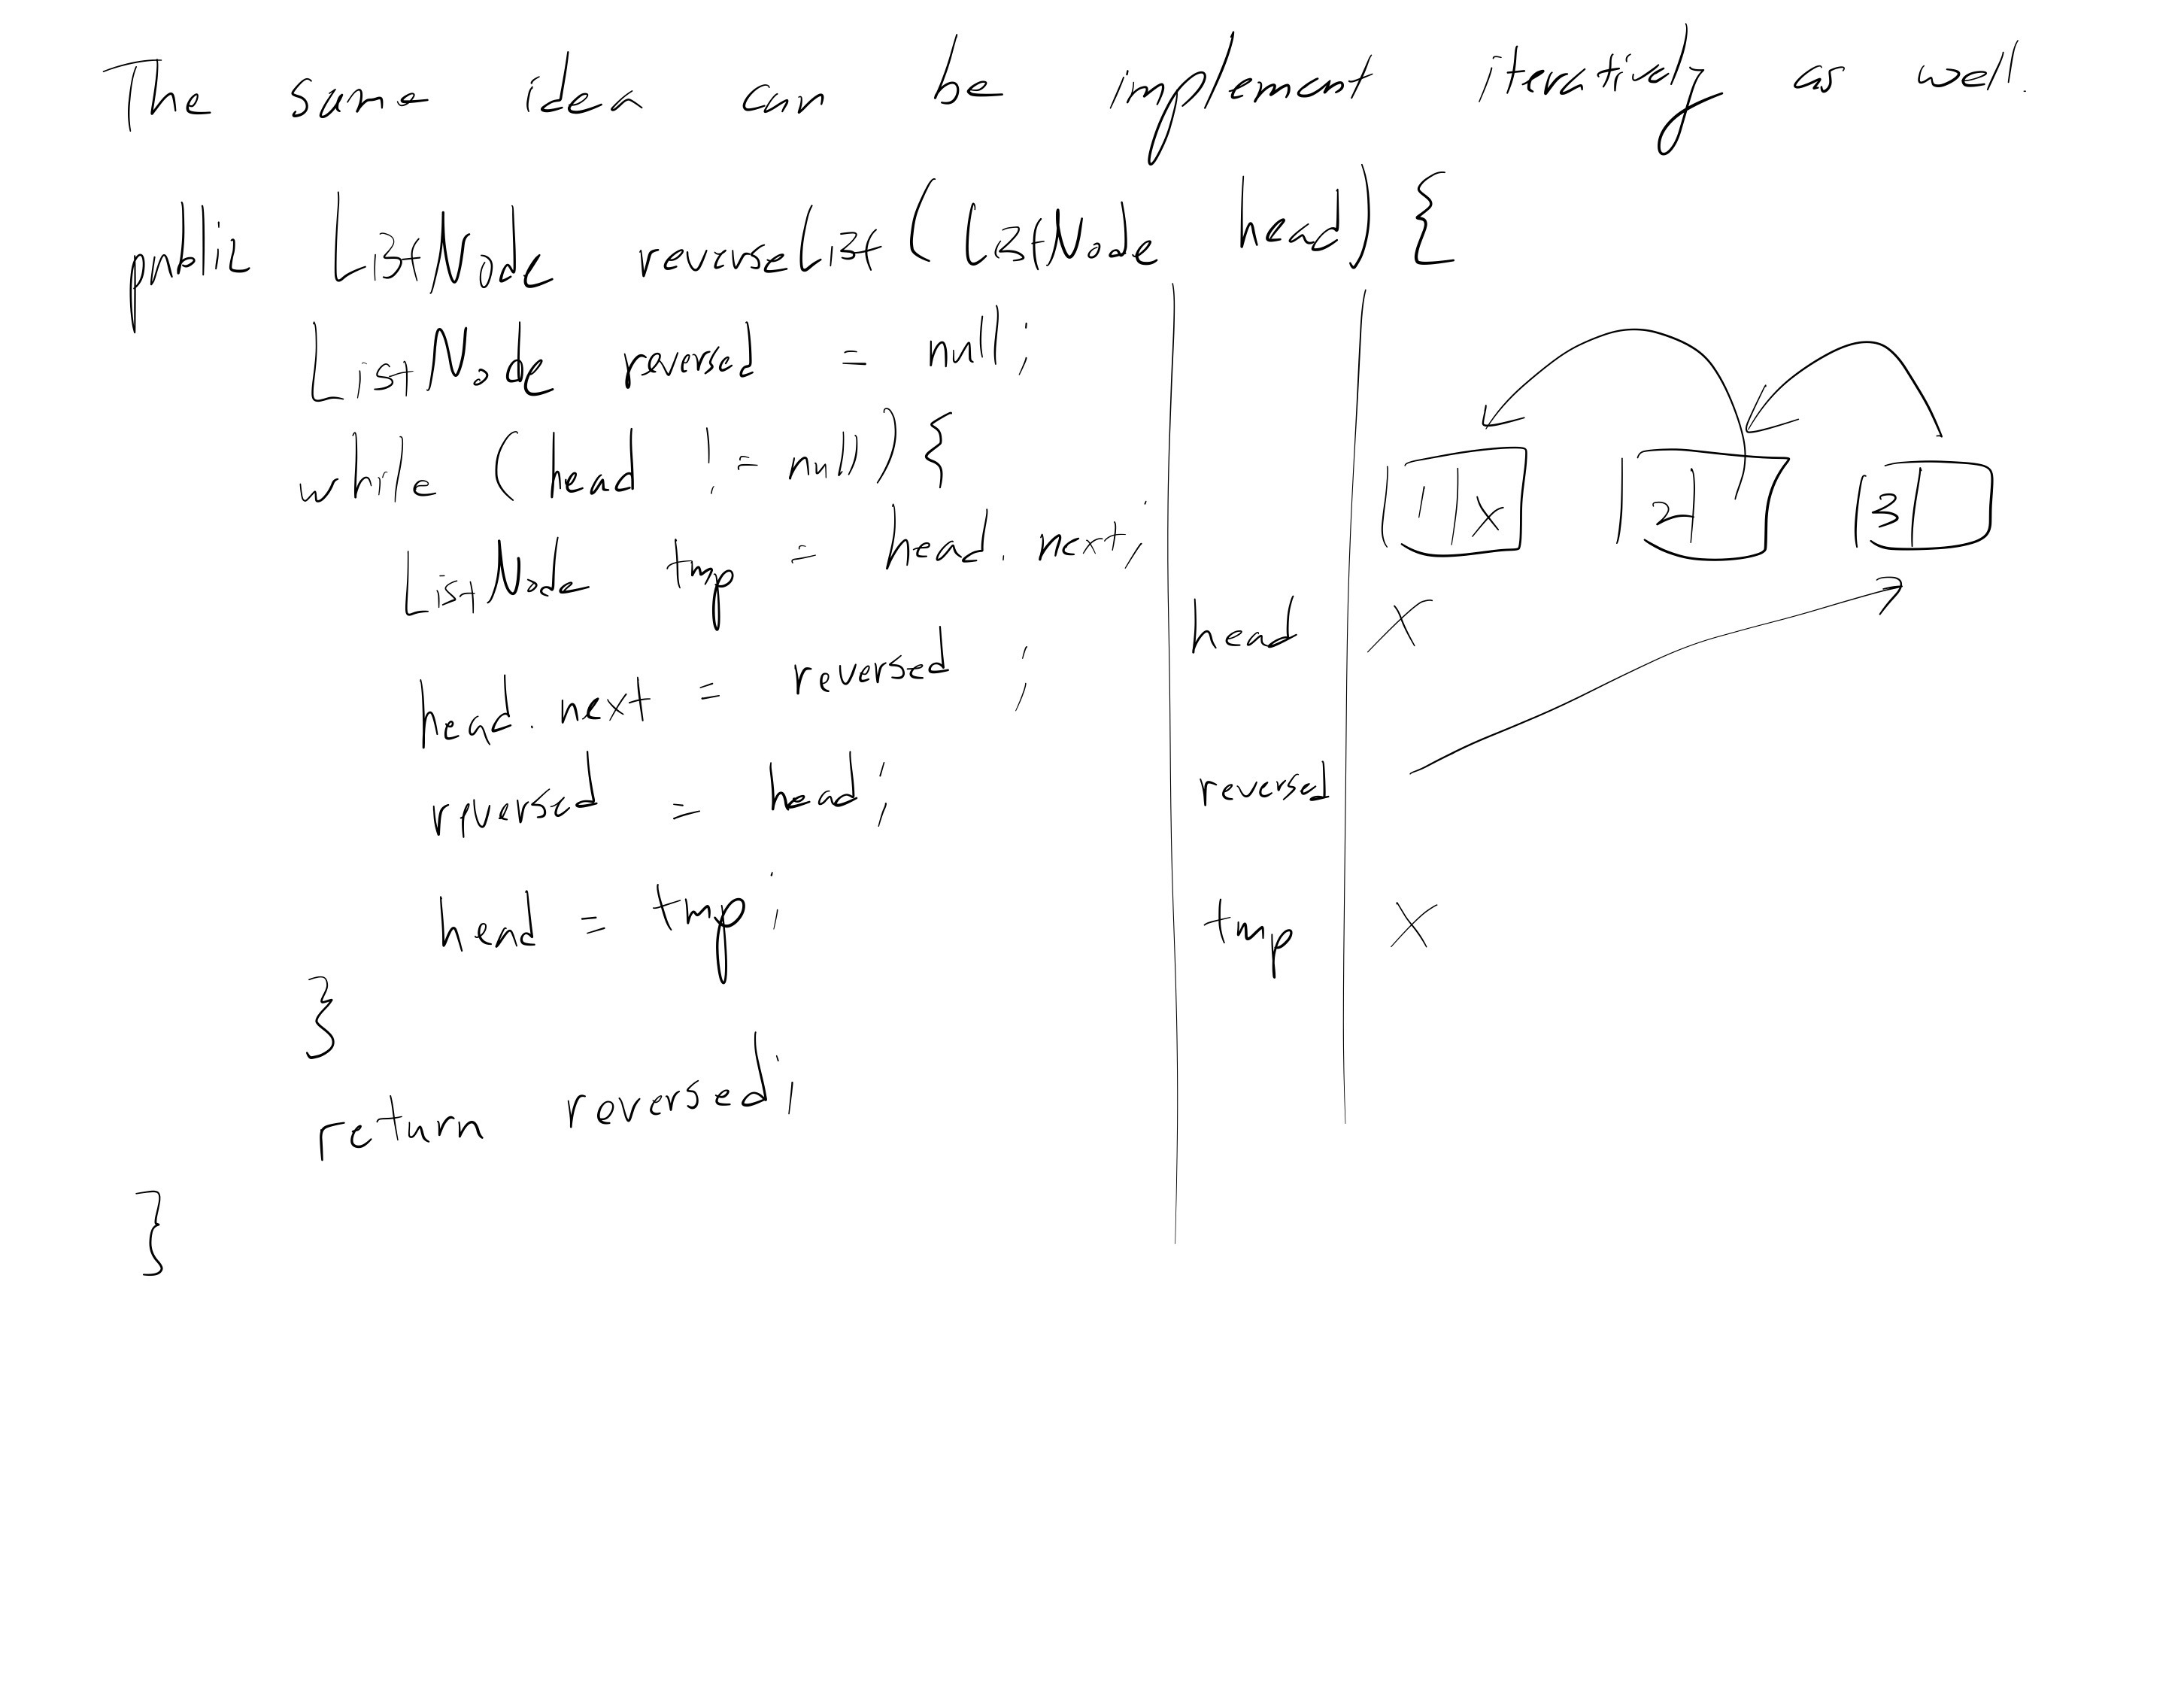 The same idea can be implement iteratively as well.
public ListNode reverseList (ListNode head) {
ListNode reversed = null;
while (head != null) {
ListNode tmp = head.next;
head.next = reversed ;
reversed = head;
head = tmp;
}
return reversed;
}
1 X 2 3
head X
reversed
tmp X